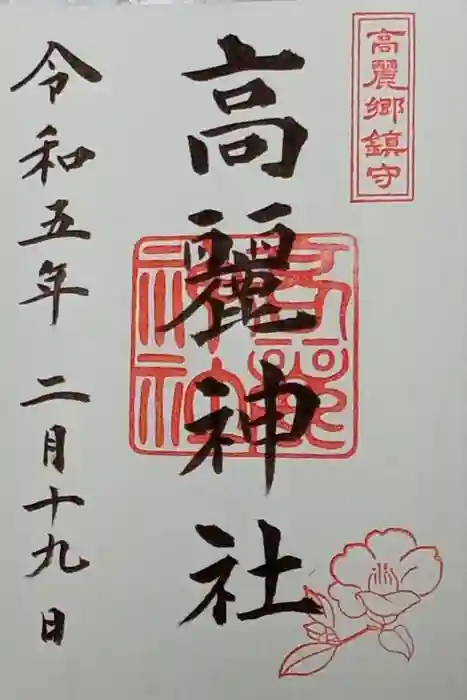 高麗郷鎮守
高麗神社
令和五年 二月十九日
高麗
神社